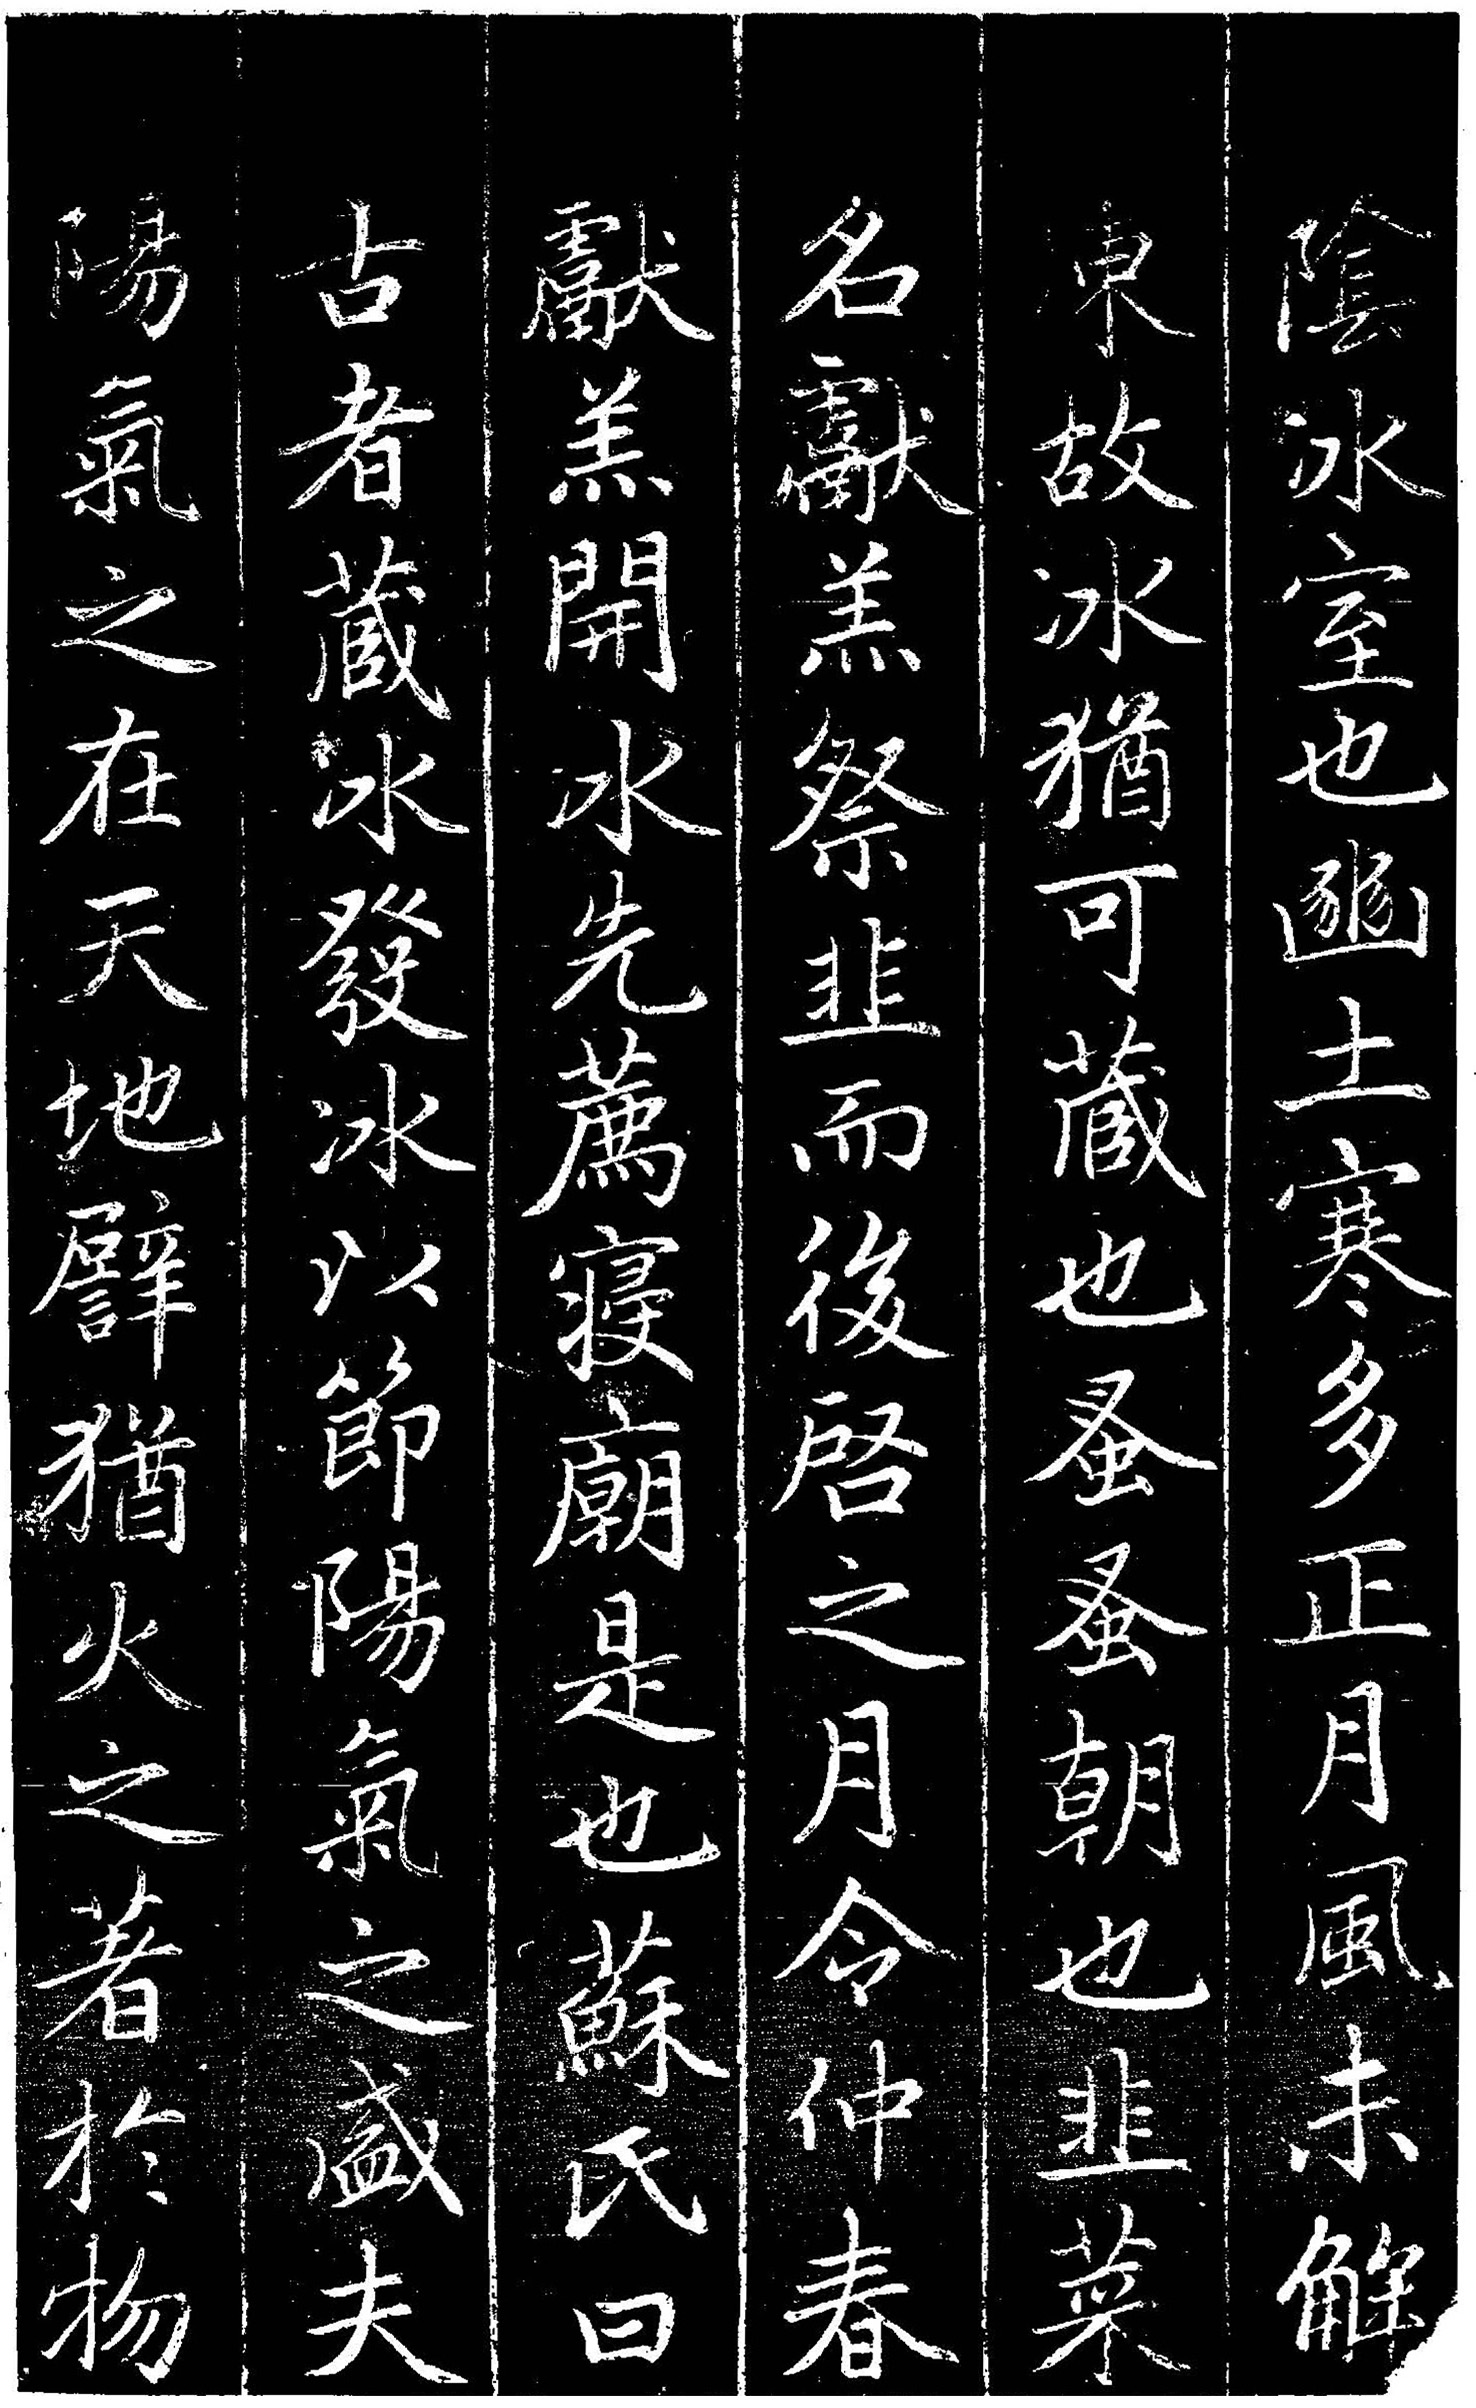 陰冰室也豳土寒多正月風未解
凍故冰猶可藏也蚤蚤朝也韭菜
名獻羔祭韭而後啓之月令仲春
獻羔開冰先薦寢廟是也蘇氏曰
古者藏冰發冰以節陽氣之盛夫
陽氣之在天地譬猶火之著於物